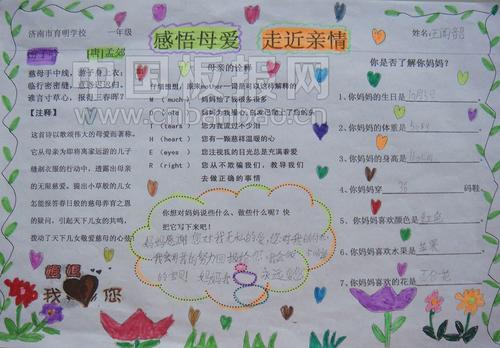 济南市育明学校 一年级
感悟母爱 走近亲情
姓名
[唐]孟郊
慈母手中线，游子身上衣；
临行密密缝，意恐迟迟归。
谁言寸草心，报得三春晖？
【注释】
这首诗以歌颂伟大的母爱而著称。
它从母亲为即将离家远游的儿子
缝制衣服的行动中，透露出母亲
的无限慈爱。提出小草般的儿女
怎能报答春日般的慈母养育之恩
的疑问，引起天下儿女的共鸣，
拨动了天下儿女敬爱慈母的心弦！
母亲的诠释
仔细想想，原来mother一词是可以这样解释的
M （much） 妈妈给了我很多很多
O
T （tears） 您为我流过不少泪
H （heart） 您有一颗慈祥温暖的心
E （eyes） 您注视我的目光总是充满着爱
R （right） 您从不欺骗我们，教导我们
去做正确的事情
你想对妈妈说些什么、做些什么呢？快
把它写下来吧！
妈妈感谢您对我无私的爱，您对我的
我会用我的努力回报给您，
妈妈
你是否了解你妈妈？
1、你妈妈的生日是
2、你妈妈的体重是 50kg
3、你妈妈的身高是
4、你妈妈穿 36 码鞋
5、你妈妈喜欢颜色是 红色
6、你妈妈喜欢水果是 苹果
7、你妈妈喜欢的花是
妈妈
我 您
中国板报网
www.cnbanbao.cn